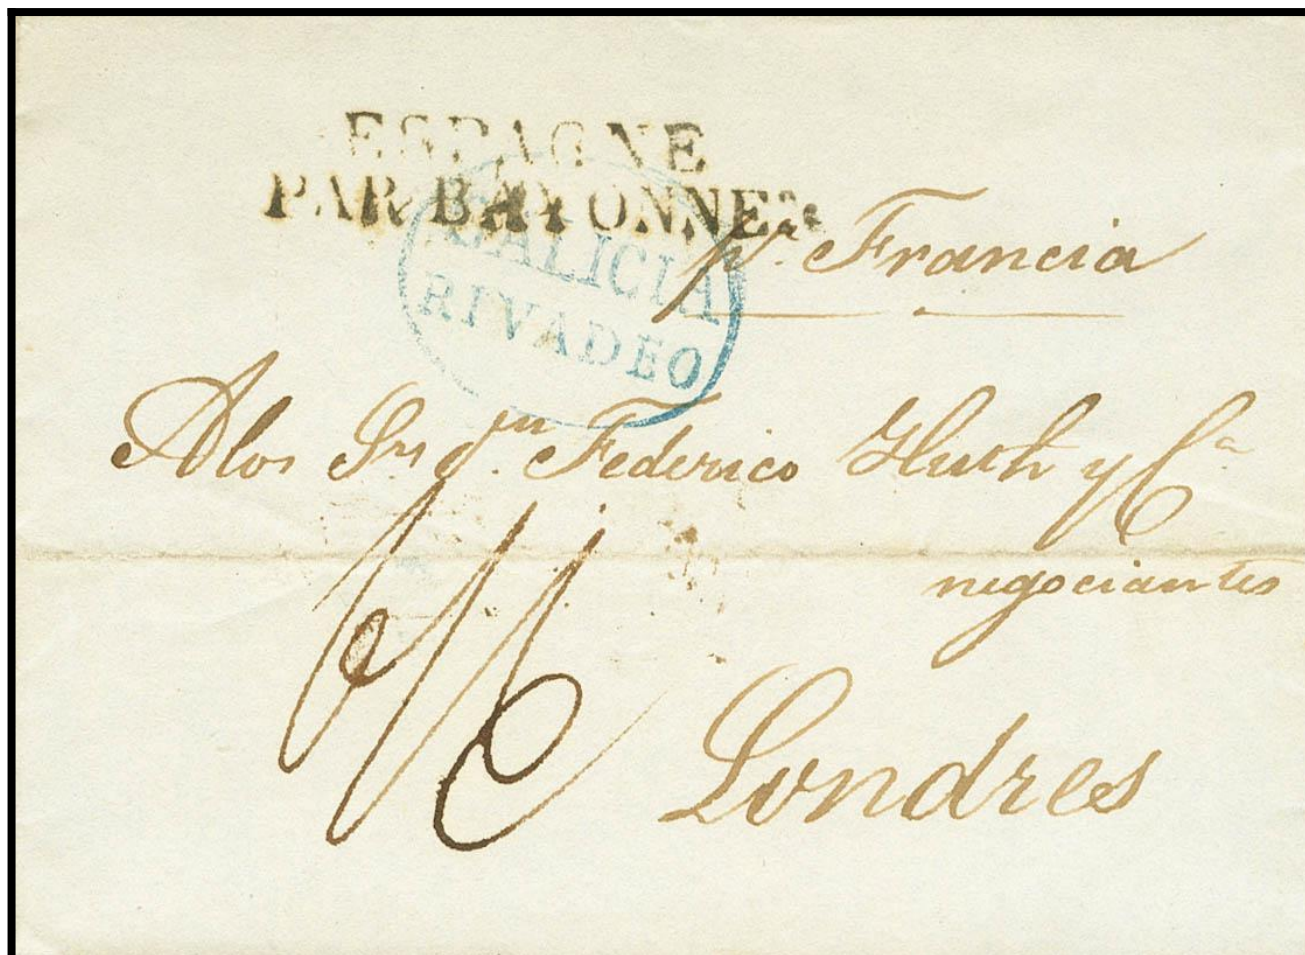 ESPAGNE
PAR BAYONNE
GALICIA
RIVADEO
pr. Francia
A los Srs dn. Federico Huth y Ca
negociantes
Londres